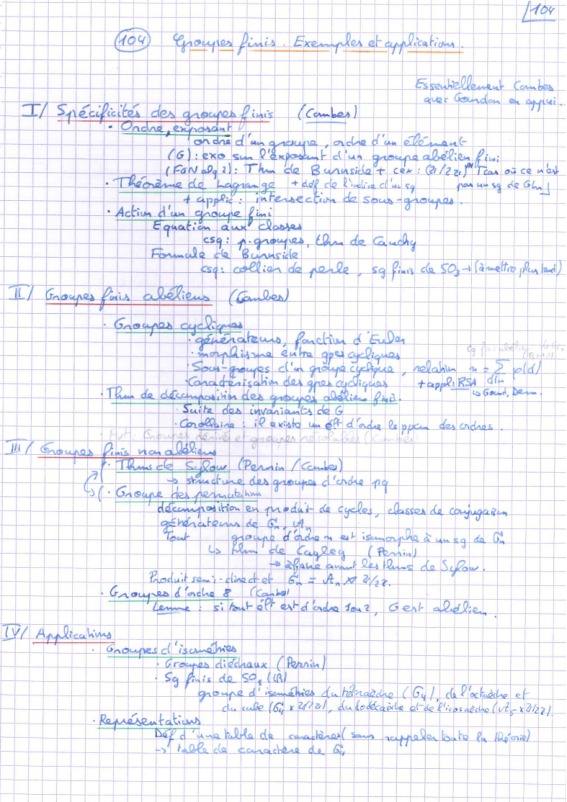 104
104 Groupes finis. Exemples et applications.
Essentiellement Combes
avec Gourdon en appui.
I/ Spécificités des groupes finis (Combes)
• Ordre, exposant
ordre d'un groupe, ordre d'un élément
(G) : exo sur l'exposant d'un groupe abélien fini
(FGN alg 2) : Thm de Burnside + cex : (Z/2Z)^N [cas où ce n'est
• Théorème de Lagrange + déf de l'indice d'un sg pas un sg de Gln]
+ applic : intersection de sous-groupes.
• Action d'un groupe fini
Equation aux classes
csq : p-groupes, thm de Cauchy
Formule de Burnside
csq : collier de perle, sg finis de SO3 → (à mettre plus tard)
II/ Groupes finis abéliens (Combes)
• Groupes cycliques
• générateurs, fonction d'Euler
• morphisme entre gpes cycliques
• Sous-groupes d'un groupe cyclique, relation n = Σ φ(d)
d|n
• Caractérisation des gpes cycliques + appli RSA
↳ Gourd, Dem.
• Thm de décomposition des groupes abéliens finis.
• Suite des invariants de G
• Corollaire : il existe un élt d'ordre le ppcm des ordres.
III/ Groupes finis non abéliens
• Thms de Sylow (Perrin / Combes)
→ structure des groupes d'ordre pq
• Groupe des permutations
décomposition en produit de cycles, classes de conjugaison
générateurs de Gn, An
Tout groupe d'ordre n est isomorphe à un sg de Gn
↳ thm de Cayley (Perrin)
→ à faire avant les thms de Sylow.
Produit semi-direct et Gn = An ⋊ Z/2Z.
• Groupes d'ordre 8 (Combes)
Lemme : si tout élt est d'ordre 1 ou 2, G est abélien.
IV/ Applications
• Groupes d'isométries
• Groupes diédraux (Perrin)
• Sg finis de SO3(R)
groupe d'isométries du tétraèdre (G4), de l'octaèdre et
du cube (G4 x Z/2Z), du dodécaèdre et de l'icosaèdre (A5 x Z/2Z).
• Représentations
Déf d'une table de caractères (sans rappeler toute la théorie)
→ table de caractère de G4